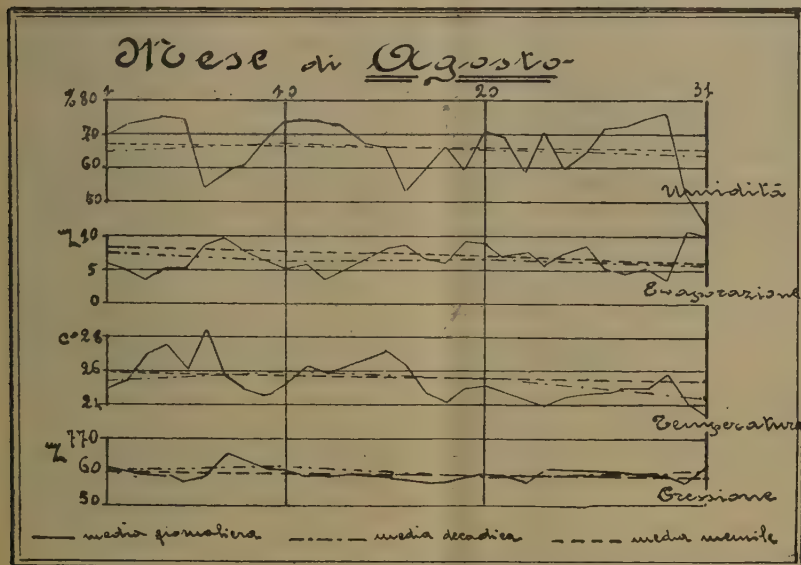 Mese di Agosto
1 10 20 31
% 80
70
60
50
Umidità
10
5
0
Evaporazione
C° 28
26
24
Temperatura
770
60
50
Pressione
media giornaliera media decadica media mensile